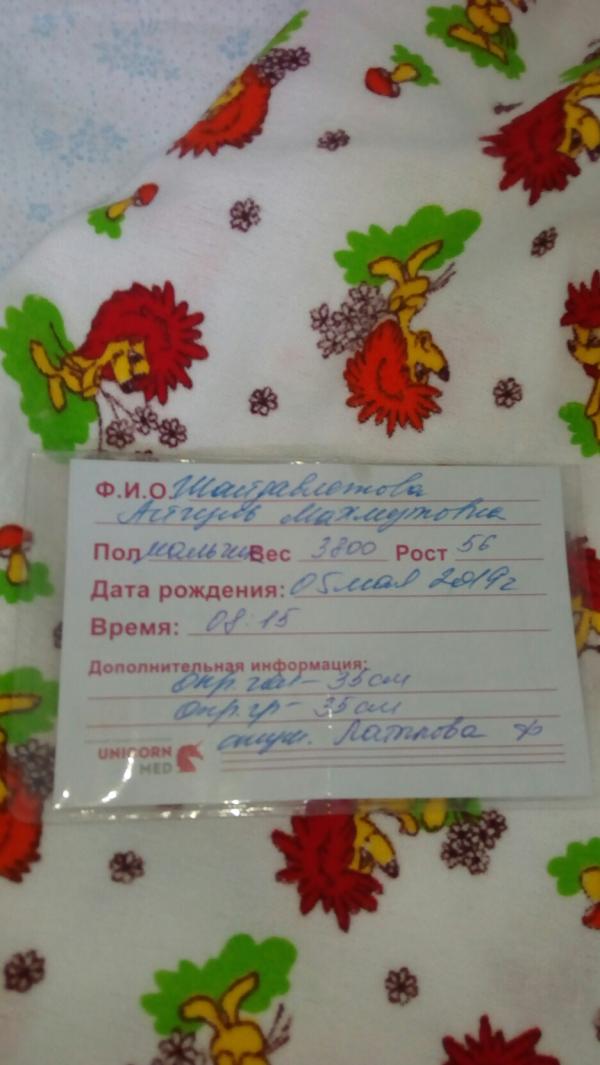 Ф.И.О. Шайдавлетова
Махмутовна
Пол мальчик Вес 3800 Рост 56
Дата рождения: 05 мая 2019г
Время: 08:15
Дополнительная информация:
окр. гол – 35 см
окр. гр – 35 см
акуш. Латыпова
UNICORN
MED